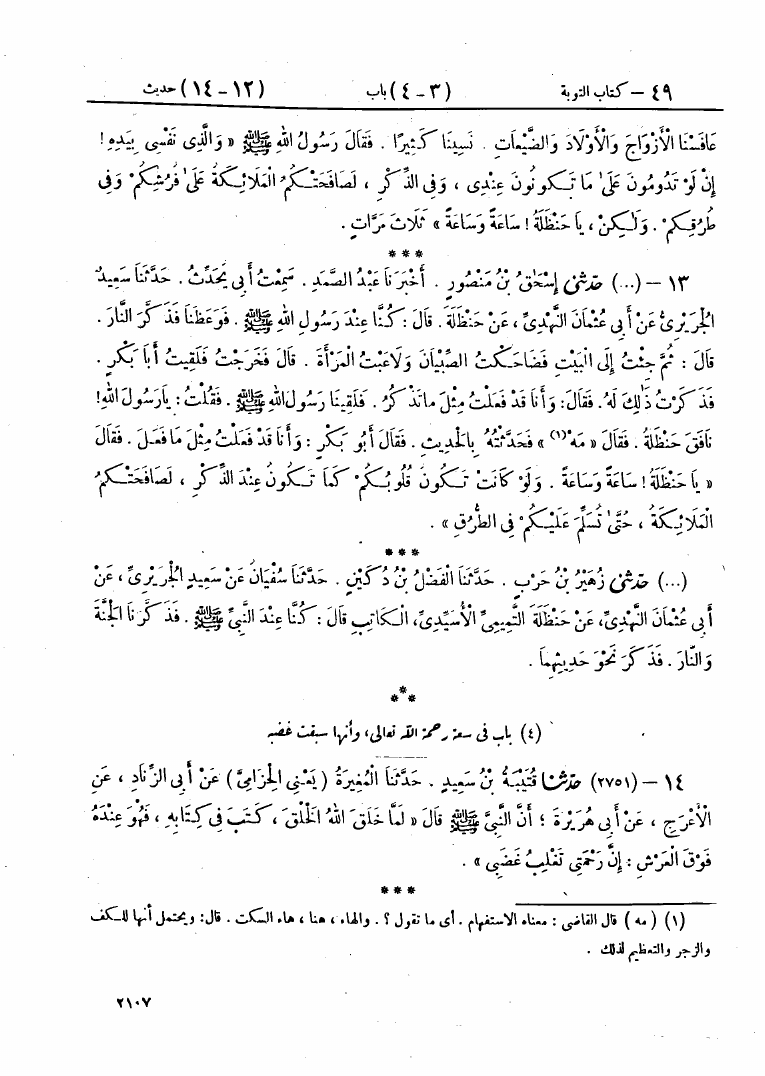 ٤٩ – كتاب التوبة (٣ – ٤) باب (١٢ – ١٤) حديث
عَافَسْنَا الْأَزْوَاجَ وَالْأَوْلَادَ وَالضَّيْعَاتِ . نَسِينَا كَثِيرًا . فَقَالَ رَسُولُ اللهِ ﷺ « وَالَّذِي نَفْسِي بِيَدِهِ !
إِنْ لَوْ تَدُومُونَ عَلَىٰ مَا تَكُونُونَ عِنْدِي ، وَفِي الذِّكْرِ ، لَصَافَحَتْكُمُ الْمَلَائِكَةُ عَلَىٰ فُرُشِكُمْ وَفِي
طُرُقِكُمْ . وَلَٰكِنْ ، يَا حَنْظَلَةُ ! سَاعَةً وَسَاعَةً » ثَلَاثَ مَرَّاتٍ .
***
١٣ – (...) حَدَّثَنِي إِسْحَٰقُ بْنُ مَنْصُورٍ . أَخْبَرَنَا عَبْدُ الصَّمَدِ . سَمِعْتُ أَبِي يُحَدِّثُ . حَدَّثَنَا سَعِيدٌ
الْجُرَيْرِيُّ عَنْ أَبِي عُثْمَانَ النَّهْدِيِّ ، عَنْ حَنْظَلَةَ . قَالَ : كُنَّا عِنْدَ رَسُولِ اللهِ ﷺ . فَوَعَظَنَا فَذَكَّرَ النَّارَ .
قَالَ : ثُمَّ جِئْتُ إِلَى الْبَيْتِ فَضَاحَكْتُ الصِّبْيَانَ وَلَاعَبْتُ الْمَرْأَةَ . قَالَ فَخَرَجْتُ فَلَقِيتُ أَبَا بَكْرٍ .
فَذَكَرْتُ ذَٰلِكَ لَهُ . فَقَالَ : وَأَنَا قَدْ فَعَلْتُ مِثْلَ مَا تَذْكُرُ . فَلَقِينَا رَسُولَ اللهِ ﷺ . فَقُلْتُ : يَا رَسُولَ اللهِ !
نَافَقَ حَنْظَلَةُ . فَقَالَ « مَهْ (١) » فَحَدَّثْتُهُ بِالْحَدِيثِ . فَقَالَ أَبُو بَكْرٍ : وَأَنَا قَدْ فَعَلْتُ مِثْلَ مَا فَعَلَ . فَقَالَ
« يَا حَنْظَلَةُ ! سَاعَةً وَسَاعَةً . وَلَوْ كَانَتْ تَكُونُ قُلُوبُكُمْ كَمَا تَكُونُ عِنْدَ الذِّكْرِ ، لَصَافَحَتْكُمُ
الْمَلَائِكَةُ ، حَتَّىٰ تُسَلِّمَ عَلَيْكُمْ فِي الطُّرُقِ » .
***
(...) حَدَّثَنِي زُهَيْرُ بْنُ حَرْبٍ . حَدَّثَنَا الْفَضْلُ بْنُ دُكَيْنٍ . حَدَّثَنَا سُفْيَانُ عَنْ سَعِيدٍ الْجُرَيْرِيِّ ، عَنْ
أَبِي عُثْمَانَ النَّهْدِيِّ ، عَنْ حَنْظَلَةَ التَّمِيمِيِّ الْأُسَيِّدِيِّ ، الْكَاتِبِ قَالَ : كُنَّا عِنْدَ النَّبِيِّ ﷺ . فَذَكَّرَنَا الْجَنَّةَ
وَالنَّارَ . فَذَكَرَ نَحْوَ حَدِيثِهِمَا .
***
(٤) باب في سعة رحمة الله تعالى، وأنها سبقت غضبه
١٤ – (٢٧٥١) حَدَّثَنَا قُتَيْبَةُ بْنُ سَعِيدٍ . حَدَّثَنَا الْمُغِيرَةُ (يَعْنِي الْحِزَامِيَّ) عَنْ أَبِي الزِّنَادِ ، عَنِ
الْأَعْرَجِ ، عَنْ أَبِي هُرَيْرَةَ ؛ أَنَّ النَّبِيَّ ﷺ قَالَ « لَمَّا خَلَقَ اللهُ الْخَلْقَ ، كَتَبَ فِي كِتَابِهِ ، فَهُوَ عِنْدَهُ
فَوْقَ الْعَرْشِ : إِنَّ رَحْمَتِي تَغْلِبُ غَضَبِي » .
***
(١) ( مه ) قال القاضي : معناه الاستفهام . أي ما تقول ؟ . والهاء ، هنا ، هاء السكت . قال : ويحتمل أنها للكف
والزجر والتعظيم لذلك .
٢١٠٧